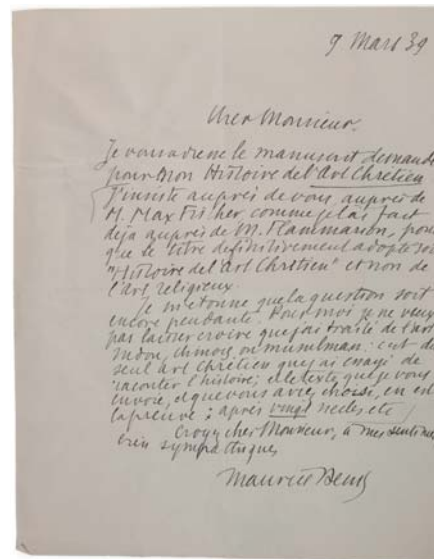 9 Mars 39
Cher Monsieur,
Je vous adresse le manuscrit demandé
pour mon Histoire de l'Art Chrétien
J'insiste auprès de vous, auprès de
M. Max Fischer comme je l'ai fait
déjà auprès de M. Flammarion, pour
que le titre définitivement adopté soit
"Histoire de l'art Chrétien" et non de
l'art religieux.
Je m'étonne que la question soit
encore pendante. Pour moi je ne veux
pas laisser croire que j'ai traité de l'art
indou, chinois, ou musulman : c'est du
seul art Chrétien que j'ai essayé de
raconter l'histoire ; et le texte que je vous
envoie, et que vous avez choisi, en est
la preuve : après vingt siècles etc
Croyez cher Monsieur, à mes sentiments
très sympathiques
Maurice Denis